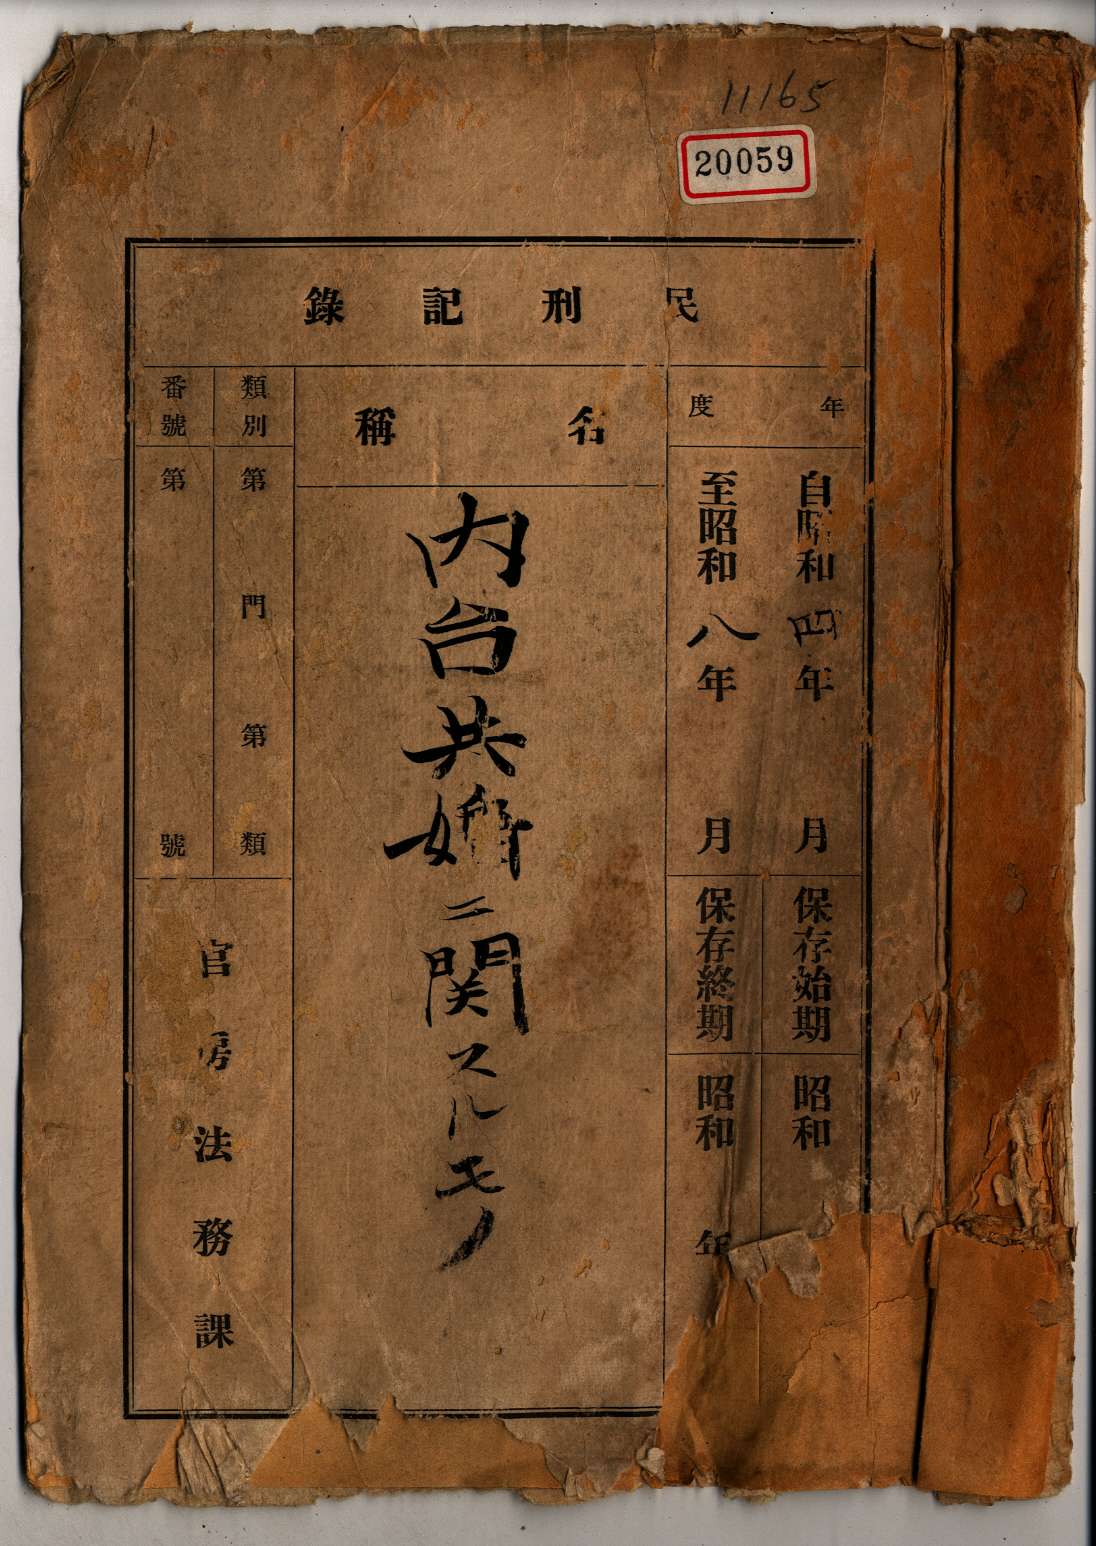 11165
20059
民刑記錄
年度
自昭和四年 月
至昭和八年 月
保存始期
昭和
保存終期
昭和 年
名稱
内台共婚ニ関スルモノ
類別
第 門 第 類
番號
第 號
官房法務課